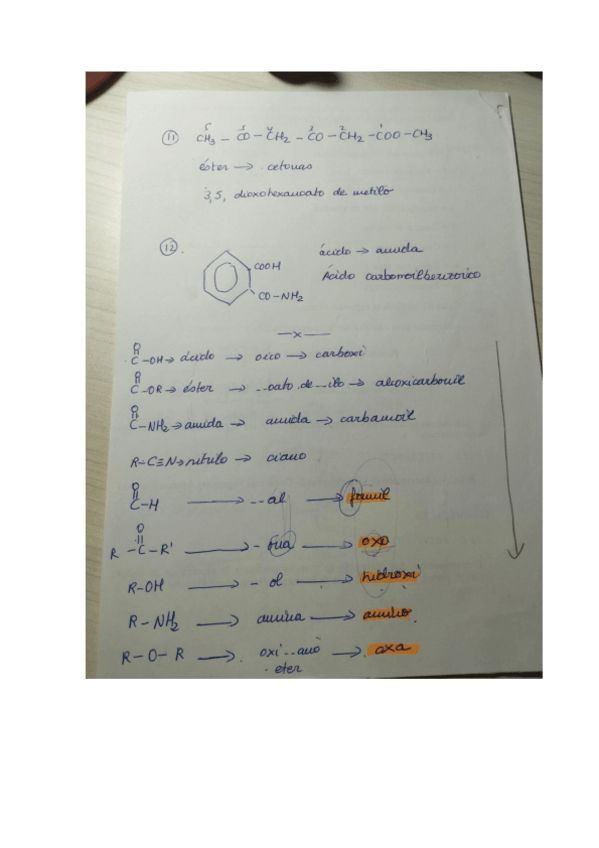 11 CH3 - CO - CH2 - CO - CH2 - COO - CH3
éster → cetonas
3,5, dioxohexanoato de metilo
12. COOH
CO - NH2
ácido → amida
Ácido carbamoilbenzoico
—x—
O
C - OH → ácido → oico → carboxi
O
C - OR → éster → ..oato de ..ilo → alcoxicarbonil
O
C - NH2 → amida → amida → carbamoil
R - C≡N → nitrilo → ciano
O
C - H → ..al → formil
O
R - C - R' → - ona → oxo
R - OH → - ol → hidroxi
R - NH2 → amina → amino
R - O - R → oxi..ano → oxa
eter